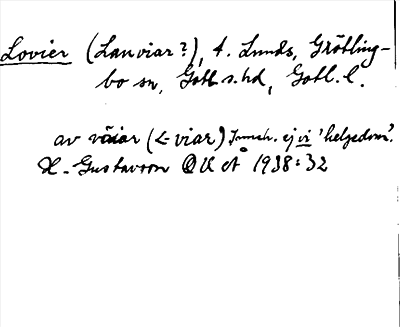 Lovier (Lauviar?), t. Lunds, Grötling-
bo sn, Gotl. s. hd, Gotl. l.
av viar (< viar) ej vi 'helgedom'.
H. Gustavson 1938:32